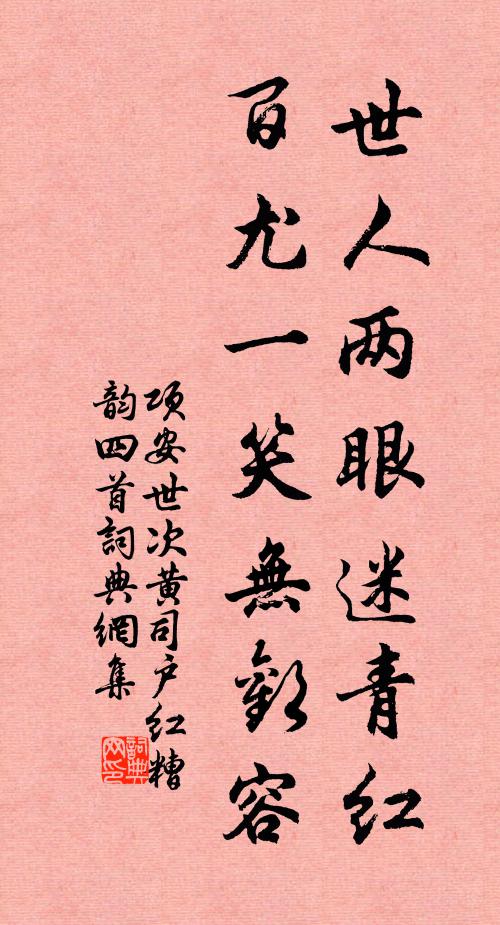 世人两眼迷青红
百尤一笑無歡容
项安世次黄司户红糟
韵四首詞典網集
詞典
网印